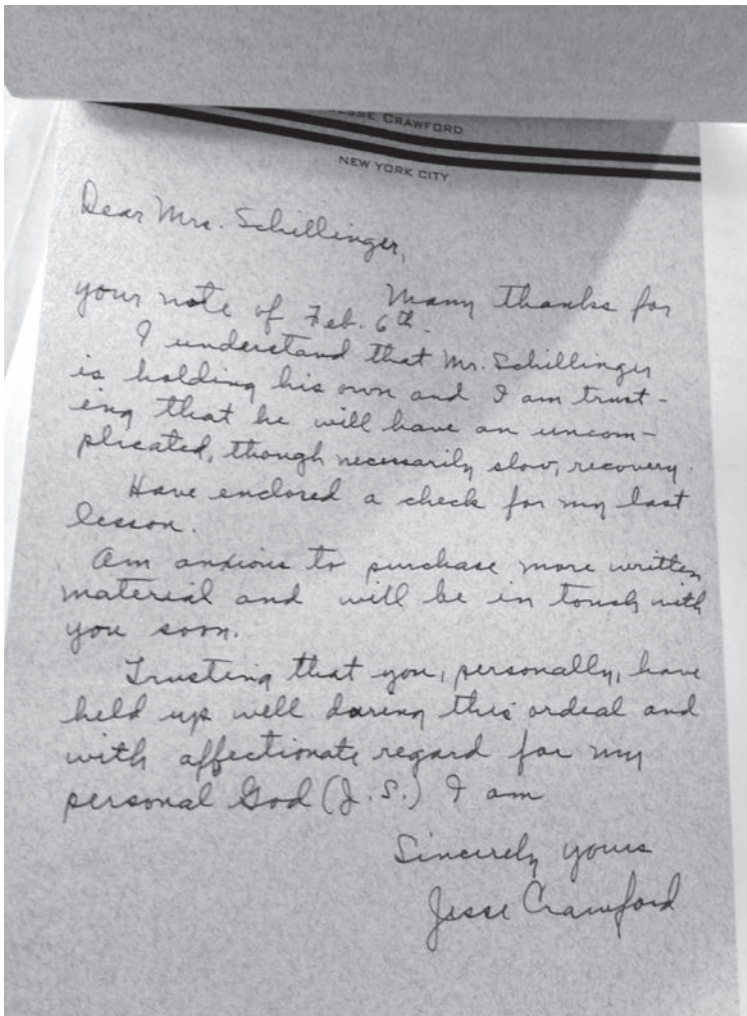 JESSE CRAWFORD
NEW YORK CITY
Dear Mrs. Schillinger,
Many thanks for
your note of Feb. 6th.
I understand that Mr. Schillinger
is holding his own and I am trust-
ing that he will have an uncom-
plicated, though necessarily slow, recovery.
Have enclosed a check for my last
lesson.
Am anxious to purchase more written
material and will be in touch with
you soon.
Trusting that you, personally, have
held up well during this ordeal and
with affectionate regard for my
personal God (J.S.) I am
Sincerely yours
Jesse Crawford